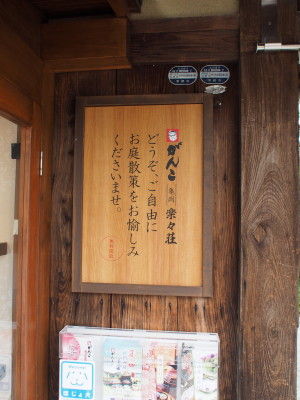 がんこ 亀岡 楽々荘
どうぞ、ご自由に
お庭散策をお愉しみ
くださいませ。
ほじょ犬